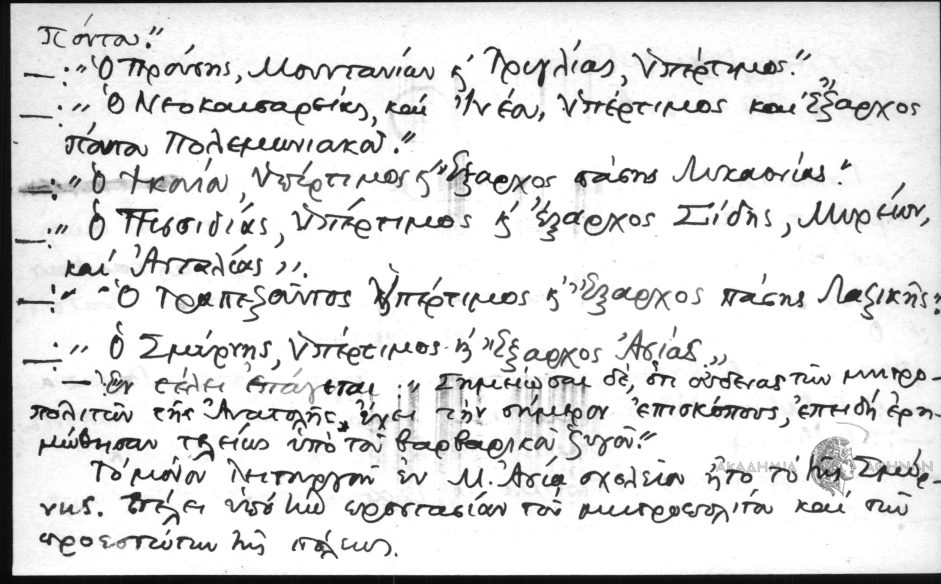 Πόντου."
—:"Ὁ Προύσης, Μουντανίων κ Τριγλίας, Ὑπέρτιμος."
—:" Ὁ Νεοκαισαρείας, καί Ἰνέου, Ὑπέρτιμος καί Ἔξαρχος
Πόντου Πολεμωνιακοῦ."
—:" Ὁ Ἰκονίου, Ὑπέρτιμος κ Ἔξαρχος πάσης Λυκαονίας."
—:" Ὁ Πισσιδίας, Ὑπέρτιμος κ Ἔξαρχος Σίδης, Μυρέων,
καί Ἀτταλείας".
—:" Ὁ Τραπεζοῦντος Ὑπέρτιμος κ Ἔξαρχος πάσης Λαζικῆς."
—:" Ὁ Σμύρνης, Ὑπέρτιμος κ Ἔξαρχος Ἀσίας"
— Ἐν τέλει ἐπάγεται: "Σημείωσαι δέ, ὅτι οὐδένας τῶν μητρο-
πολιτῶν τῆς Ἀνατολῆς, ἔχει τήν σήμερον ἐπισκόπους, ἐπειδή ἐρη-
μώθησαν τελείως ὑπό τοῦ βαρβαρικοῦ ζυγοῦ."
Τό μόνον λειτουργοῦν ἐν Μ. Ἀσίᾳ σχολεῖον ἦτο τό τῆς Σμύρ-
νης. ὑπό τήν προστασίαν τοῦ μητροπολίτου καί τῶν
προεστώτων τῆς πόλεως.
ΑΚΑΔΗΜΙΑ ΑΘΗΝΩΝ